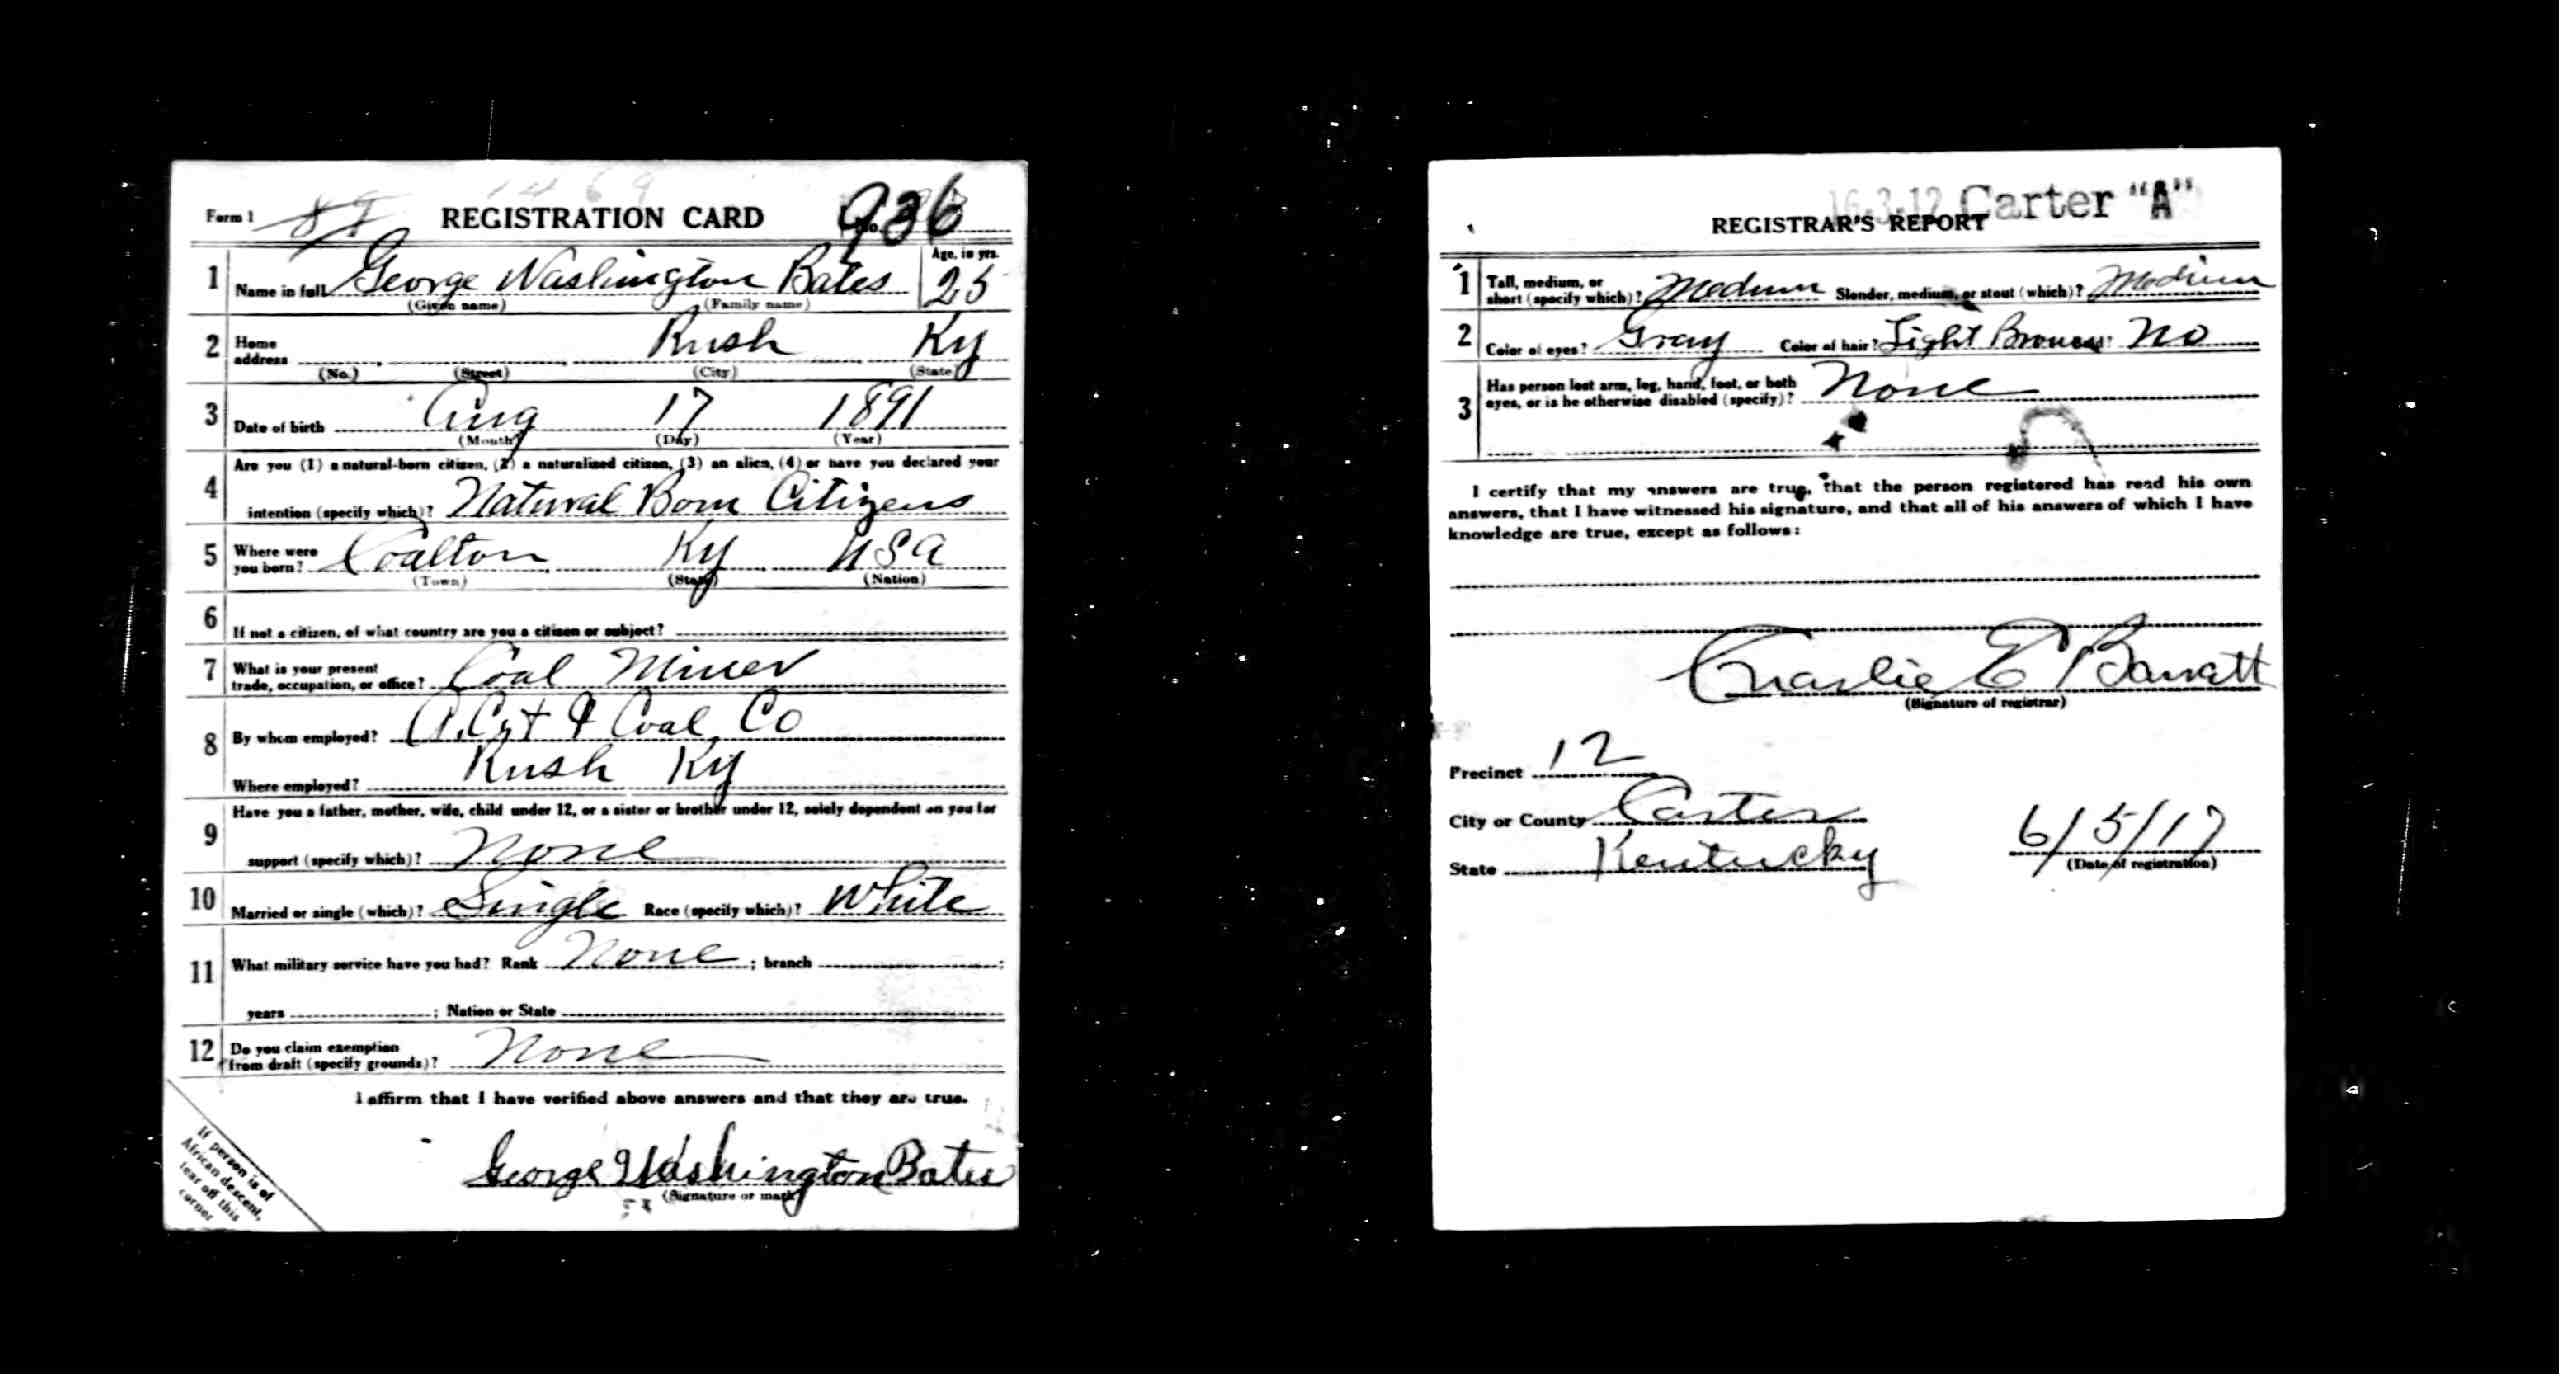 Form 1 REGISTRATION CARD No. 936
1 Name in full George Washington Bates Age, in yrs. 25
(Given name) (Family name)
2 Home address Rush Ky
(No.) (Street) (City) (State)
3 Date of birth Aug 17 1891
(Month) (Day) (Year)
4 Are you (1) a natural-born citizen, (2) a naturalized citizen, (3) an alien, (4) or have you declared your
intention (specify which)? Natural Born Citizens
5 Where were you born? Coalton Ky USA
(Town) (State) (Nation)
6 If not a citizen, of what country are you a citizen or subject?
7 What is your present
trade, occupation, or office? Coal Miner
8 By whom employed? Coal Co
Where employed? Rush Ky
9 Have you a father, mother, wife, child under 12, or a sister or brother under 12, solely dependent on you for
support (specify which)? None
10 Married or single (which)? Single Race (specify which)? White
11 What military service have you had? Rank None ; branch ;
years ; Nation or State
12 Do you claim exemption
from draft (specify grounds)? None
I affirm that I have verified above answers and that they are true.
George Washington Bates
(Signature or mark)
If person is of
African descent,
tear off this
corner
16-3-12 Carter "A"
REGISTRAR'S REPORT
1 Tall, medium, or
short (specify which)? Medium Slender, medium, or stout (which)? Medium
2 Color of eyes? Gray Color of hair? Light Brown No
3 Has person lost arm, leg, hand, foot, or both
eyes, or is he otherwise disabled (specify)? None
I certify that my answers are true, that the person registered has read his own
answers, that I have witnessed his signature, and that all of his answers of which I have
knowledge are true, except as follows:
Charlie E Barratt
(Signature of registrar)
Precinct 12
City or County Carter
State Kentucky 6/5/17
(Date of registration)